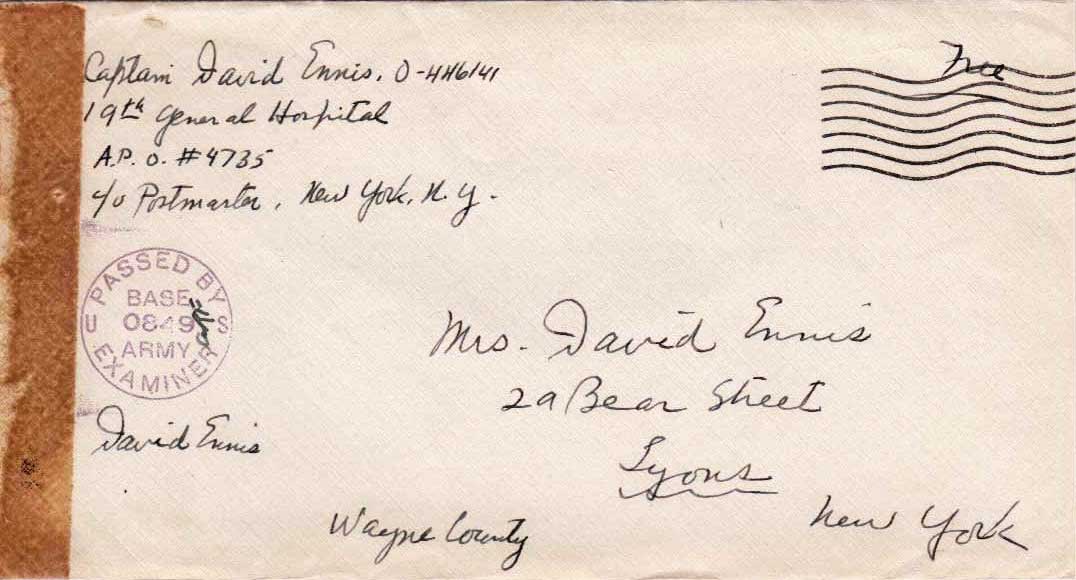 Captain David Ennis, O-446141
19th General Hospital
A.P.O. #4735
c/o Postmaster, New York, N.Y.
Free
PASSED BY
BASE
U 0849 S
ARMY
EXAMINER
David Ennis
Mrs. David Ennis
2a Bear Street
Lyons
Wayne County
New York